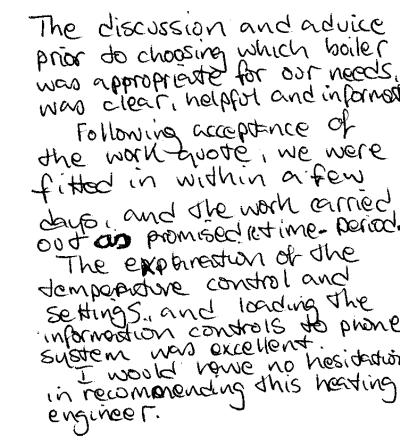 The discussion and advice
prior to choosing which boiler
was appropriate for our needs,
was clear, helpful and informat
Following acceptance of
the work quote, we were
fitted in within a few
days, and the work carried
out as promised re time-period.
The explanation of the
temperature control and
settings, and loading the
information controls to phone
system was excellent.
I would have no hesitation
in recommending this heating
engineer.